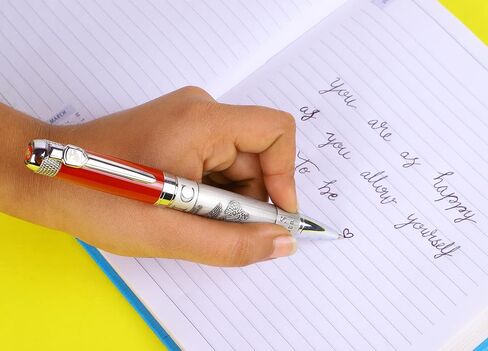 You are as happy
as you allow yourself
To be
MARCH
C